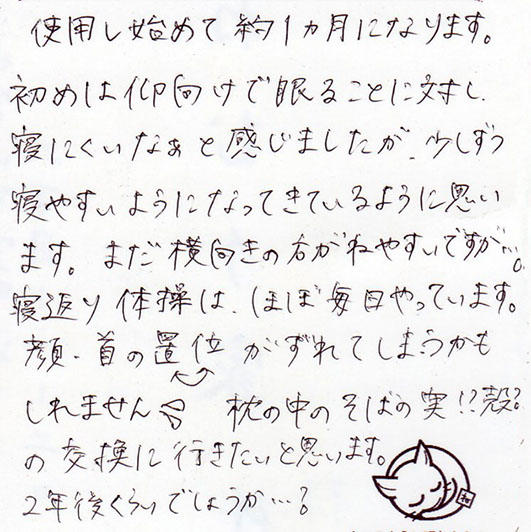 使用し始めて約1ヵ月になります。
初めは仰向けで眠ることに対し、
寝にくいなぁと感じましたが、少しずつ
寝やすいようになってきているように思い
ます。まだ横向きの方がねやすいですが…。
寝返り体操は、ほぼ毎日やっています。
顔・首の置位がずれてしまうかも
しれません 枕の中のそばの実!?殻?
の交換に行きたいと思います。
2年後くらいでしょうか…?